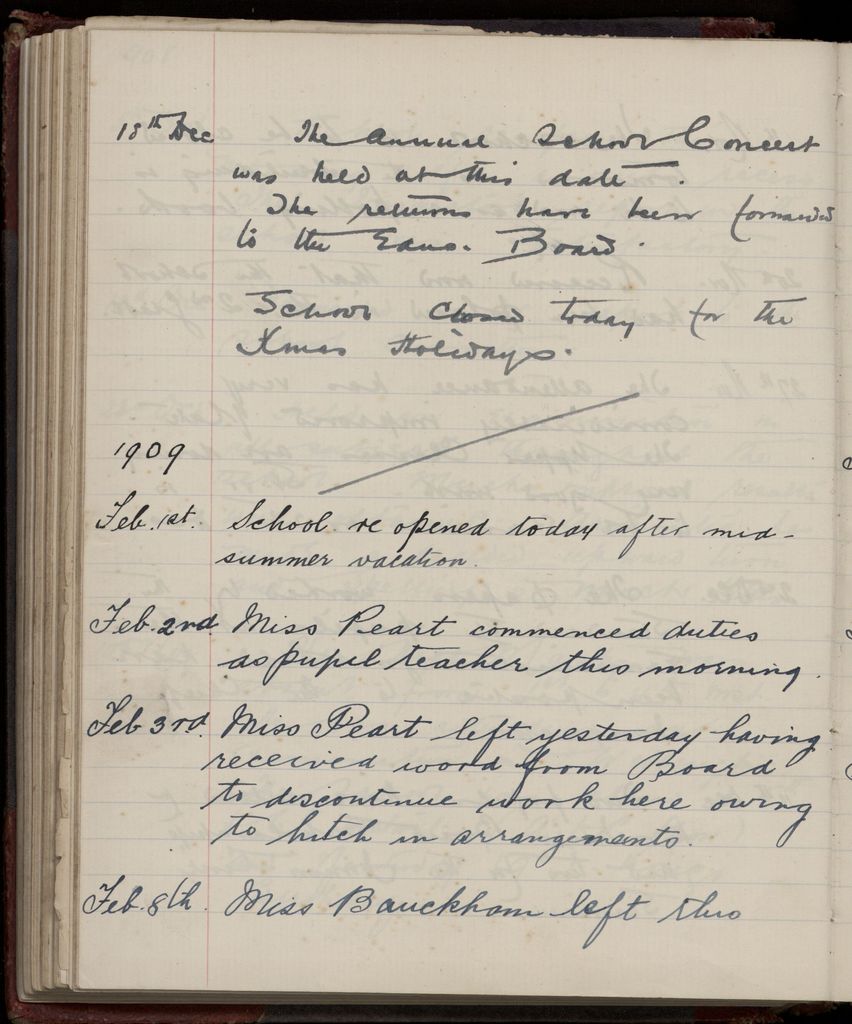 18th Dec The Annual School Concert
was held at this date.
The returns have been forwarded
to the Educ. Board.
School closed today for the
Xmas Holidays.
1909
Feb. 1st. School re opened today after mid-
summer vacation.
Feb. 2nd. Miss Peart commenced duties
as pupil teacher this morning.
Feb 3rd. Miss Peart left yesterday having
received word from Board
to discontinue work here owing
to hitch in arrangements.
Feb. 8th. Miss Bauckham left this